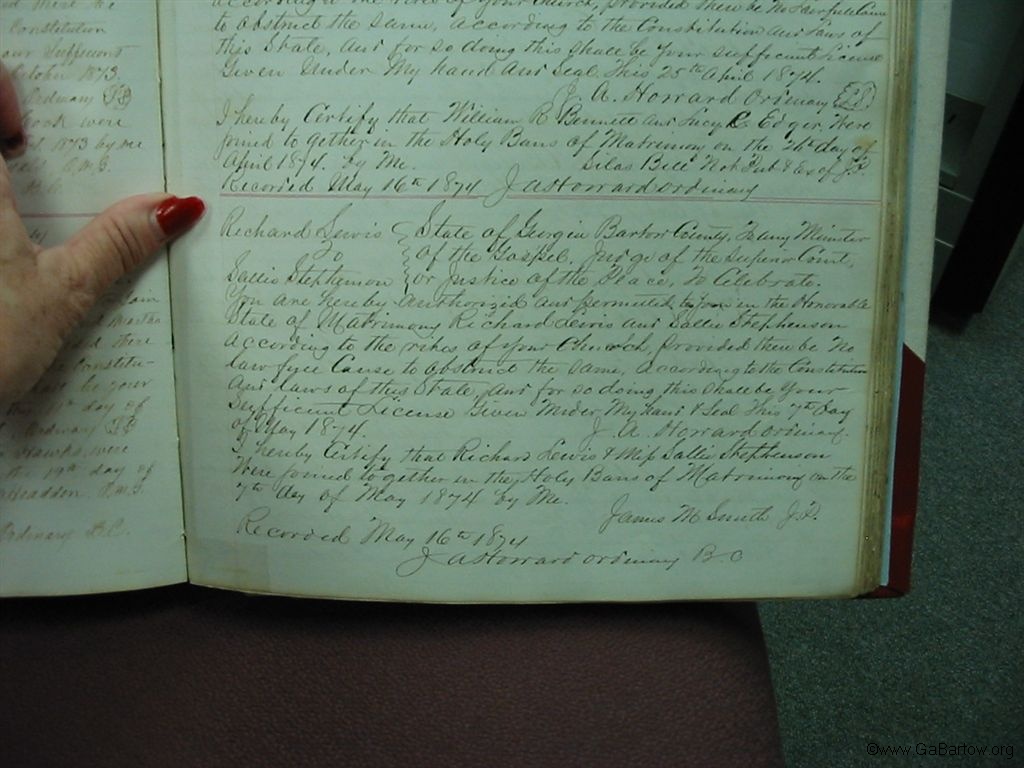 and were the
Constitution
our Sufficient
October 1873.
Ordinary
Cook were
1873 by me
B.C.
day of
Ordinary
Hawks were
the 19th day of
Ordinary B.C.
according to the rites of your Church, provided there be no lawfull Cause
to obstruct the same, according to the Constitution and laws of
this State, and for so doing this shall be your sufficient License
Given Under My hand and Seal This 25th April 1874.
J. A. Howard Ordinary LS
I hereby Certify that William R Bennett and Lucy C Edger Were
joined to gether in the Holy Bans of Matrimony on the 26th day of
April 1874. by Me. Silas Bell Not Pub & Ex of J.P.
Recorded May 16th 1874 J A Howard ordinary
Richard Lewis State of Georgia Bartow County, To any Minister
To of the Gospel, Judge of the Superior Court,
Sallie Stephenson or Justice of the Peace, To Celebrate.
You are hereby authorized and permited to join in the Honorable
State of Matrimony Richard Lewis and Sallie Stephenson
according to the rites of your Church, provided there be No
lawfull Cause to obstruct the same, according to the Constitution
and laws of this State, and for so doing this shall be your
Sufficient License Given Under My hand & Seal This 7th Day
of May 1874. J. A. Howard ordinary.
I hereby Certify that Richard Lewis & Miss Sallie Stephenson
Were joined together in the Holy Bans of Matrimony on the
7th day of May 1874 by Me.
James M Smith J.P.
Recorded May 16th 1874
J A Howard ordinary B.C
©www.GaBartow.org